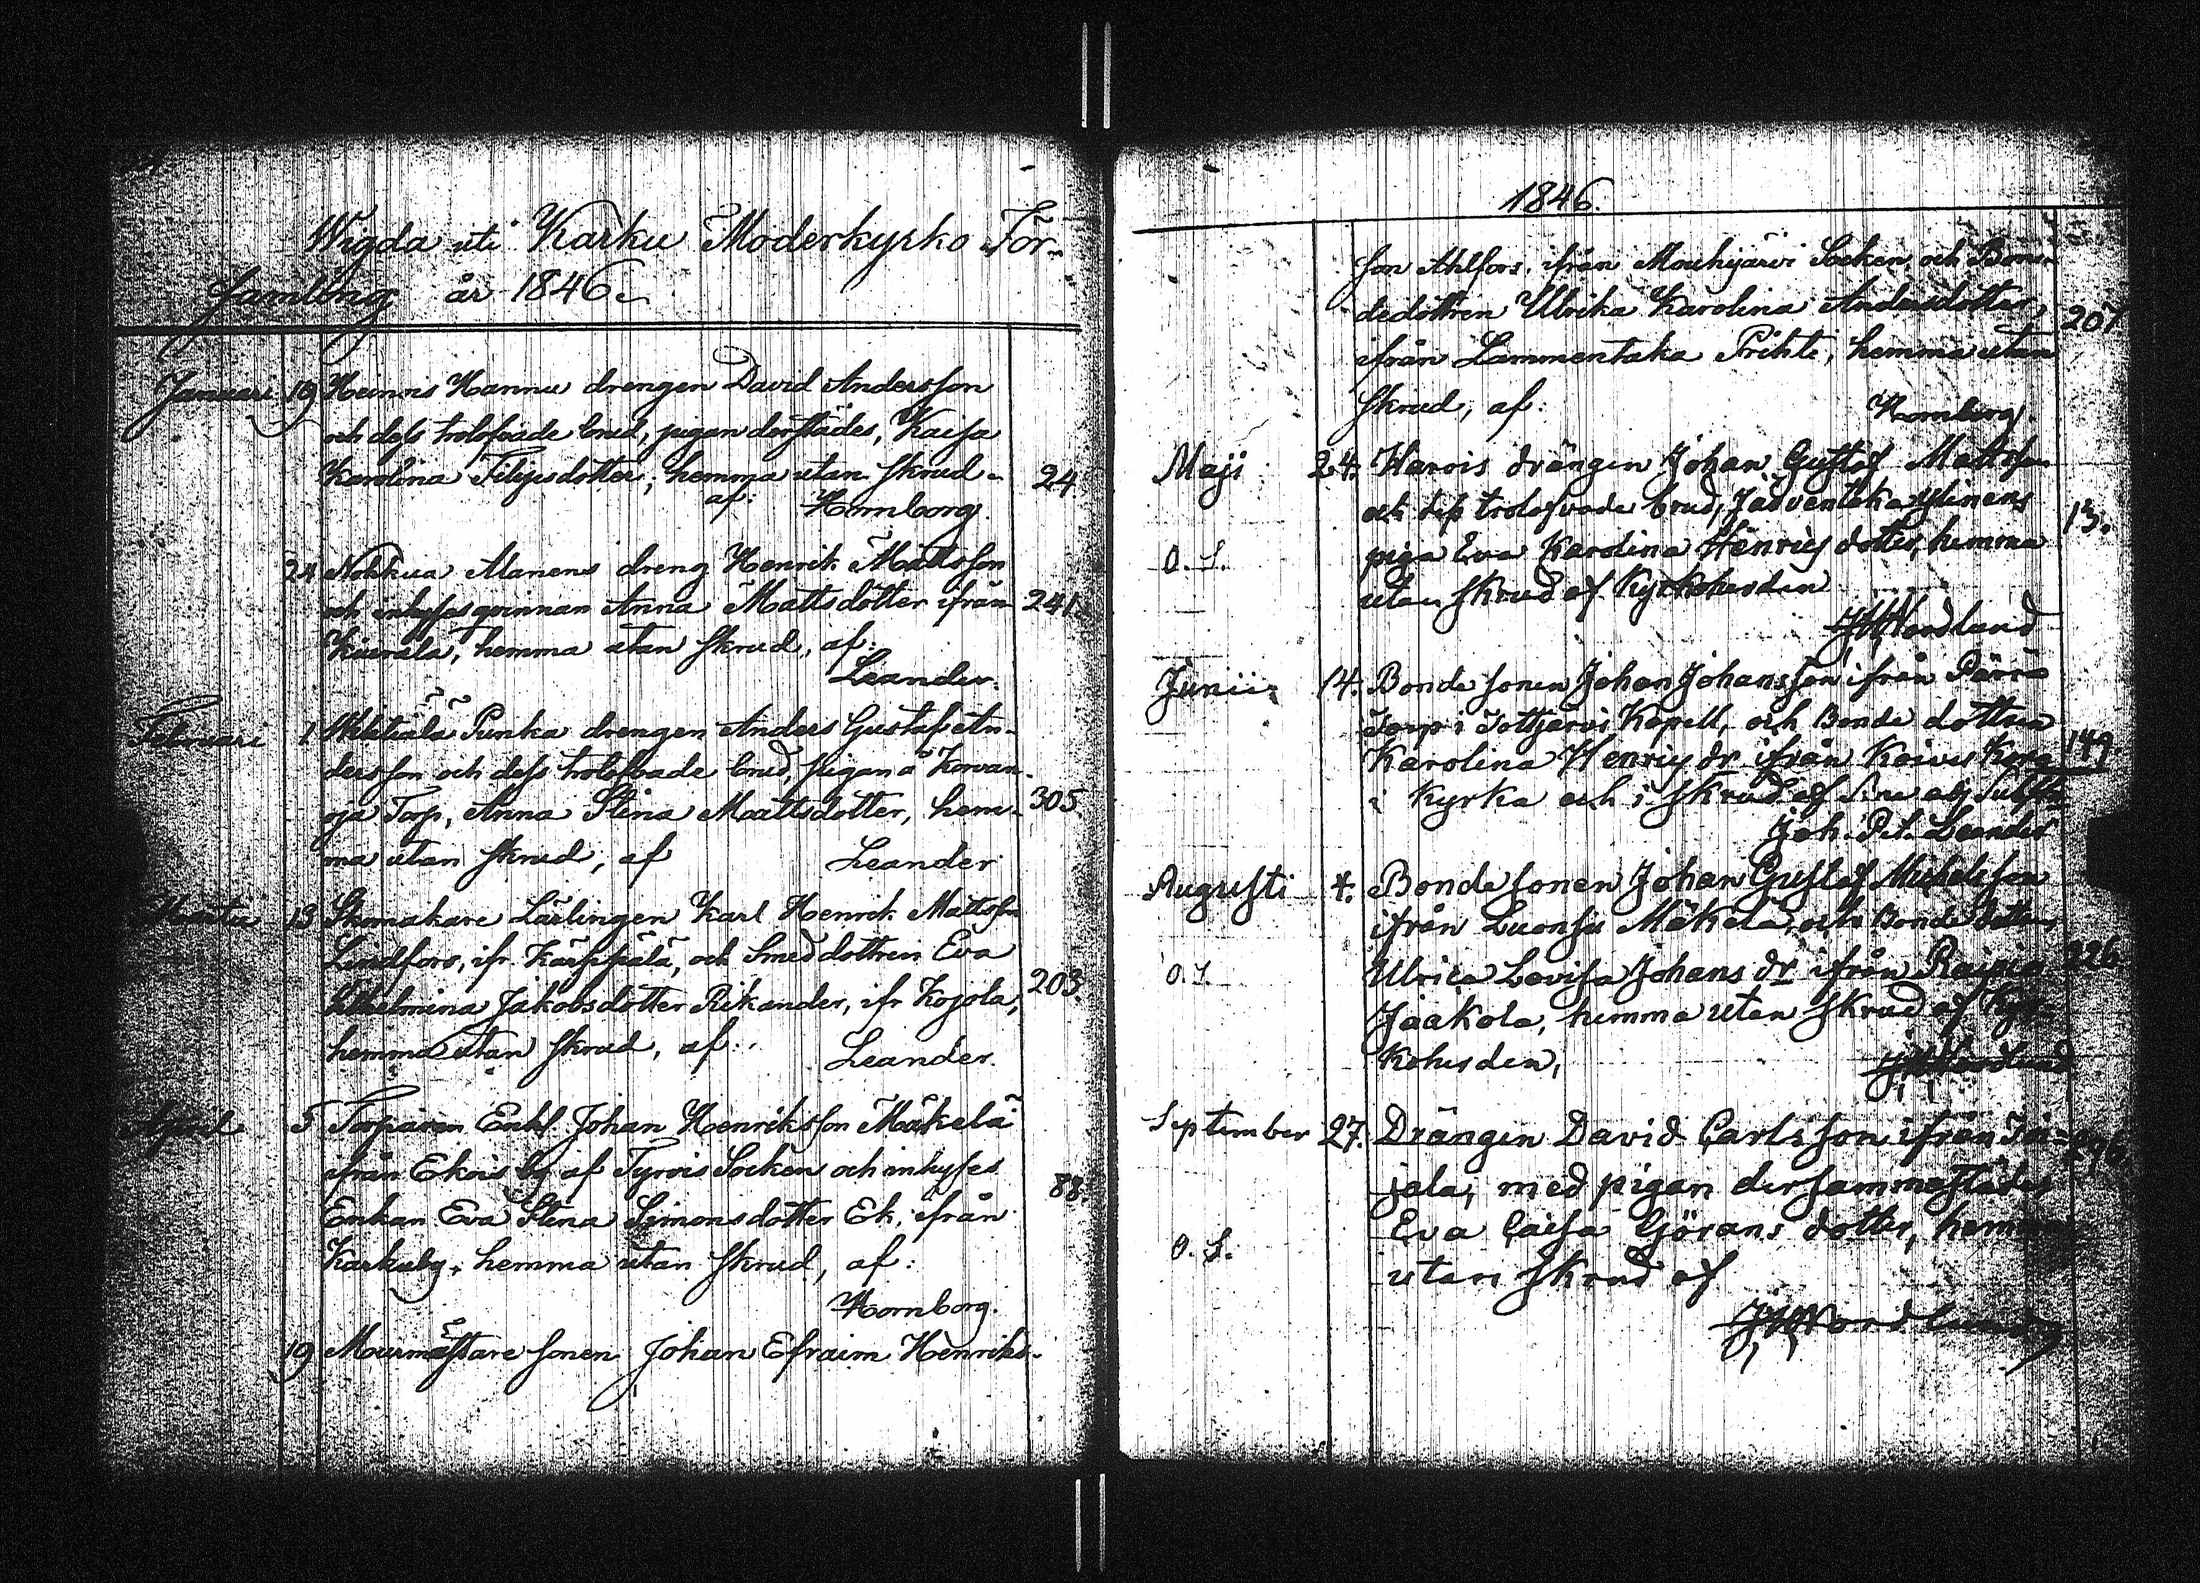 Wigda uti Karku Moderkyrko För-
samling år 1846.
Januari 19 Heinois Hannu drengen David Andersson
och dess trolofvade brud, pigan derstädes, Kaisa
Karolina Filipsdotter; hemma utan skrud 24
af: Hornborg.
24 Nohkua Alanens dreng Henrik Mattsson
och inhyses qvinnan Anna Mattsdotter ifrån 241.
Kiurala, hemma utan skrud, af:
Leander.
Februari 1 Punka drengen Anders Gustaf An-
dersson och dess trolofvade brud, pigan å Korvan-
oja Torp, Anna Stina Mattsdotter, hem- 305.
ma utan skrud, af Leander
13 Skomakare Lärlingen Karl Henrik Mattsson
Lindfors, ifr. Kärppälä, och Smeddottren Eva
Vilhelmina Jakobsdotter Rikander, ifr Kojola, 203.
hemma utan skrud, af: Leander.
April 5 Torparen Enkl. Johan Henriksson Mäkelä
ifrån Ekois by af Tyrvis Socken och inhyses
Enkan Eva Stina Simonsdotter Ek, ifrån 88.
Karkuby, hemma utan skrud, af:
Hornborg.
19 Murmästare sonen Johan Efraim Henriks-
1846.
son Ahlfors, ifrån Mouhijärvi Socken, och Bon-
dedottren Ulrika Karolina Andersdotter, 207
ifrån Lammentaka Prihti, hemma utan
skrud, af: Hornborg.
Maji 24. Warois drängen Johan Gustaf Mattsson
och dess trolofvade brud, Jädventaka Ylinens 13.
O. S. piga Eva Karolina Henrics dotter, hemma
utan skrud af Kyrkoherden
JWNordlund
Junii 14. Bonde sonen Johan Johansson ifrån Pärrä
Torp i Tottijärvi Kapell, och Bonde dottren
Karolina Henrics dr ifrån Koivis 149.
i Kyrka och i skrud af
Joh. Pet. Leander
Augusti 4. Bonde sonen Johan Gustaf Michelsson
ifrån Luonsu Mäkelä, och Bonde dottren
O. S. Ulrica Lovisa Johans dr ifrån Raipio 226
Jaakola, hemma utan skrud af Kyr-
koherden, JWNordlund
September 27. Drängen David Carlsson ifrån
jala, med pigan dersammastädes
Eva Caisa Görans dotter, hemma
O. S. utan skrud af
JWNordlund